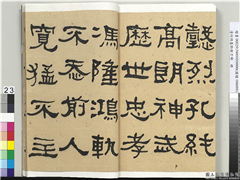 懿烈孔純
高朗神武
歷世忠孝
馮隆鴻軌
不忝前人
寬猛不主
23